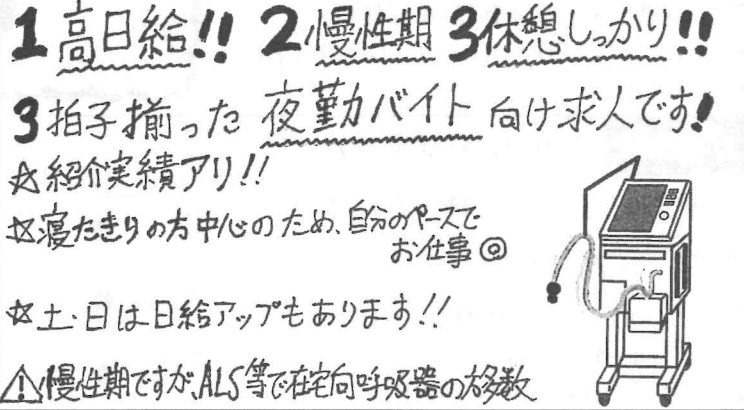 1高日給!! 2慢性期 3休憩しっかり!!
3拍子揃った 夜勤バイト 向け求人です!
☆紹介実績アリ!!
☆寝たきりの方中心のため、自分のペースで
お仕事◎
☆土・日は日給アップもあります!!
⚠慢性期ですが、ALS等で在宅向呼吸器の方多数